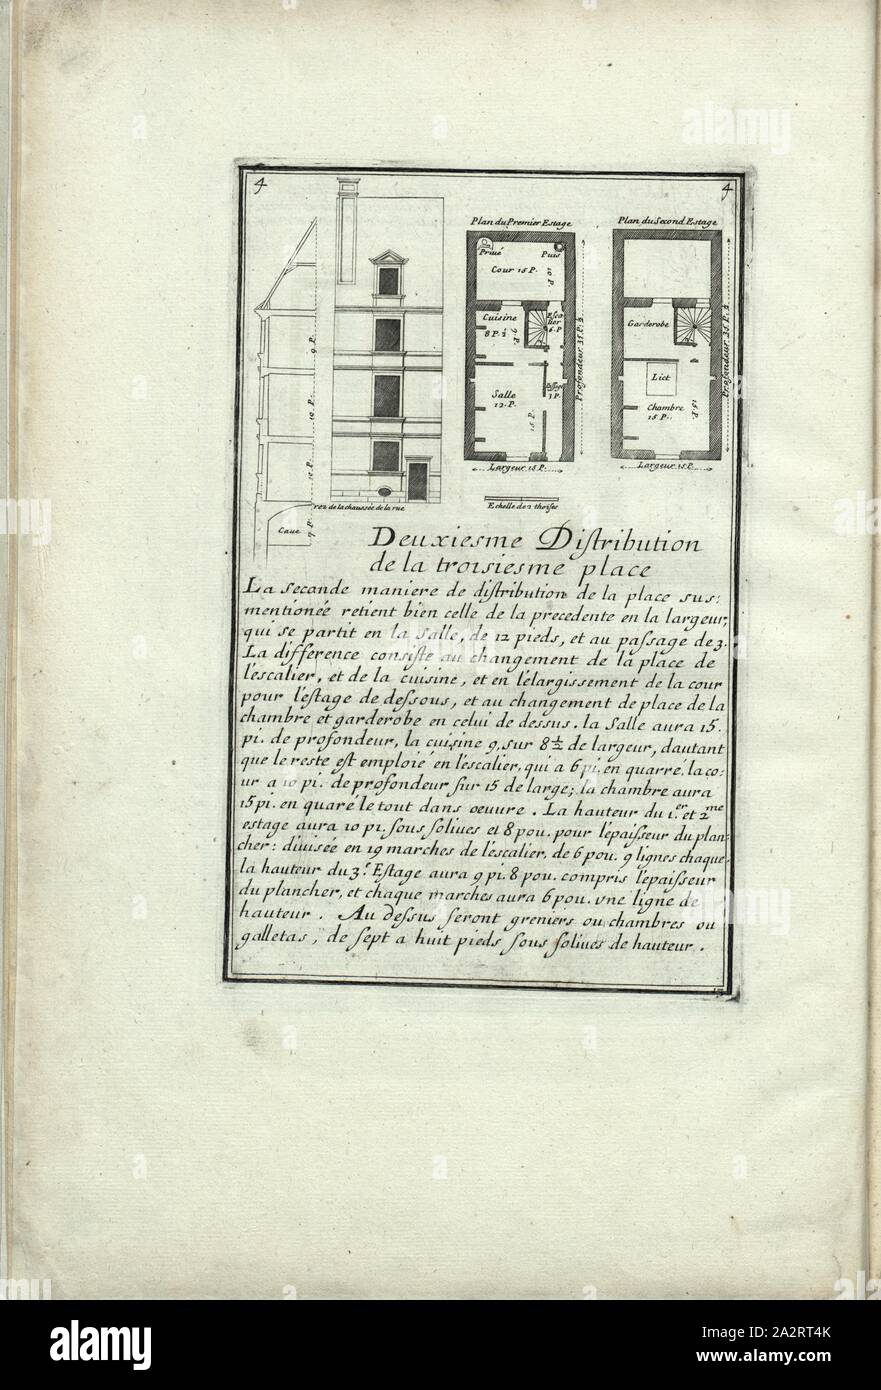 4
4
Plan du Premier Estage
Plan du Second Estage
Priué
Puis
Cour 15 P.
10 P.
Cuisine
8 P. ½
9 P.
Esca
lier
6 P.
Garderobe
Profondeur 35 P. ½
Profondeur 35 P. ½
Lict
Passage
3 P.
Salle
12. P.
15 P.
Chambre
15 P.
15 P.
9 P.
10 P.
10 P.
7 P.
Largeur 15 P.
Largeur 15 P.
rez de la chaussée de la rue
Echelle de 2 thoises
Caue
Deuxiesme Distribution
de la troisiesme place
La seconde maniere de distribution de la place sus:
mentioneé retient bien celle de la precedente en la largeur,
qui se partit en la salle, de 12 pieds, et au passage de 3.
La difference consiste au changement de la place de
l'escalier, et de la cuisine, et en l'elargissement de la cour
pour l'estage de dessous, et au changement de place de la
chambre et garderobe en celui de dessus. la salle aura 15.
pi. de profondeur, la cuisine 9, sur 8 ½ de largeur, dautant
que le reste est emploié en l'escalier, qui a 6 pi. en quarré. la co:
ur a 10 pi. de profondeur sur 15 de large; la chambre aura
15 pi. en quaré le tout dans oeuure. La hauteur du 1.er et 2.me
estage aura 10 pi. sous soliues et 8 pou. pour l'epaisseur du plan
cher: diuisée en 19 marches de l'escalier, de 6 pou. 9 lignes chaque.
la hauteur du 3.e Estage aura 9 pi. 8 pou. compris l'epaisseur
du plancher, et chaque marches aura 6 pou. vne ligne de
hauteur. Au dessus seront greniers ou chambres ou
galletas, de sept a huit pieds sous soliues de hauteur.
alamy
Image ID: 2A2RT4K
www.alamy.com